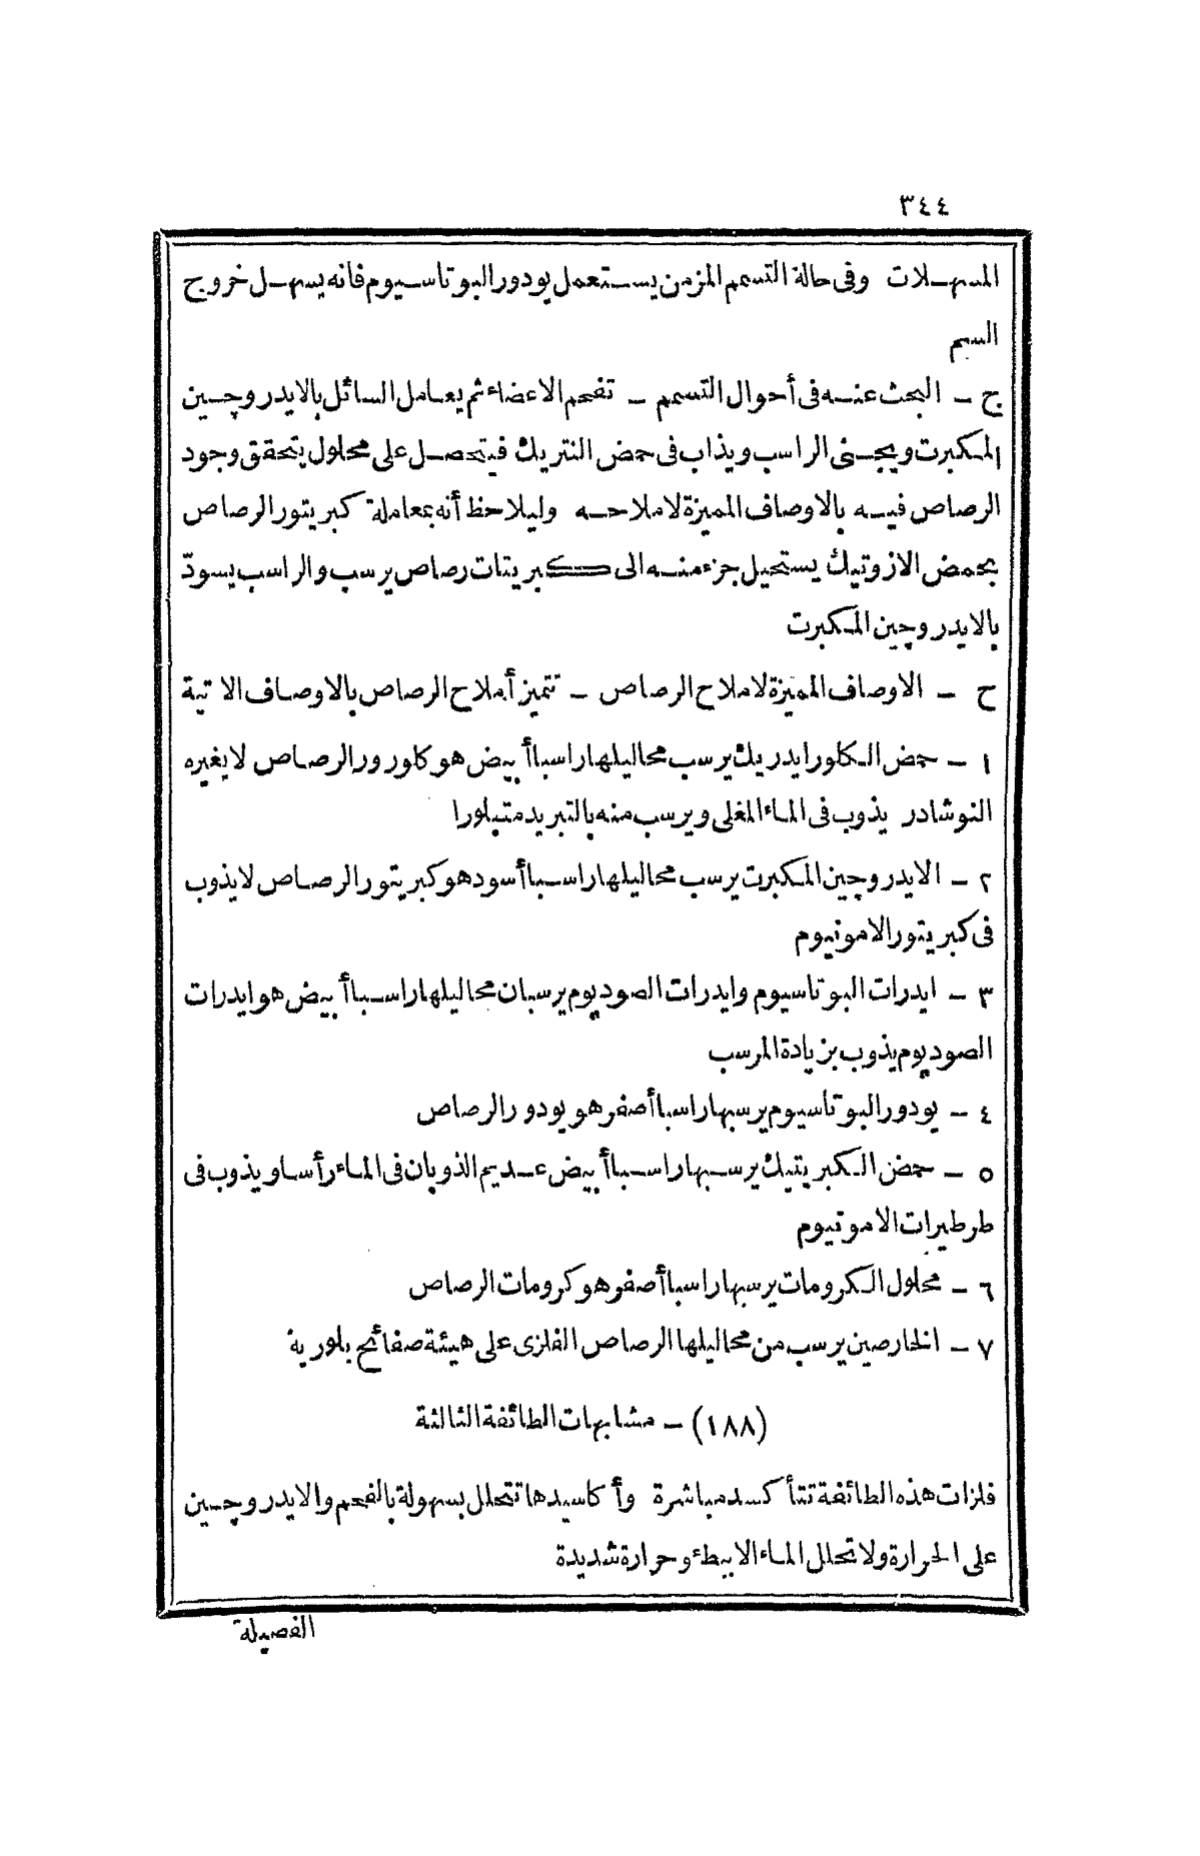 ٣٤٤
المسهلات وفى حالة التسمم المزمن يستعمل يودور البوتاسيوم فانه يسهل خروج
السم
ج – البحث عنه فى أحوال التسمم – تفحم الاعضاء ثم يعامل السائل بالايدروچين
المكبرت ويجنى الراسب ويذاب فى حمض النتريك فيتحصل على محلول يتحقق وجود
الرصاص فيه بالاوصاف المميزة لاملاحه وليلاحظ أنه بمعاملة كبريتور الرصاص
بحمض الازوتيك يستحيل جزء منه الى كبريتات رصاص يرسب والراسب يسودّ
بالايدروچين المكبرت
ح – الاوصاف المميزة لاملاح الرصاص – تتميز أملاح الرصاص بالاوصاف الاتية
١ – حمض الكلورايدريك يرسب محاليلها راسبا أبيض هو كلورور الرصاص لا يغيره
النوشادر يذوب فى الماء المغلى ويرسب منه بالتبريد متبلورا
٢ – الايدروچين المكبرت يرسب محاليلها راسبا أسود هو كبريتور الرصاص لا يذوب
فى كبريتور الامونيوم
٣ – ايدرات البوتاسيوم وايدرات الصوديوم يرسبان محاليلها راسبا أبيض هو ايدرات
الصوديوم يذوب بزيادة المرسب
٤ – يودور البوتاسيوم يرسبها راسبا أصفر هو يودور الرصاص
٥ – حمض الكبريتيك يرسبها راسبا أبيض عديم الذوبان فى الماء رأسا ويذوب فى
طرطيرات الامونيوم
٦ – محلول الكرومات يرسبها راسبا أصفر هو كرومات الرصاص
٧ – الخارصين يرسب من محاليلها الرصاص الفلزى على هيئة صفائح بلورية
(١٨٨) – مشابهات الطائفة الثالثة
فلزات هذه الطائفة تتأكسد مباشرة وأكاسيدها تتحلل بسهولة بالفحم والايدروچين
على الحرارة ولا تحلل الماء الا ببطء وحرارة شديدة
الفصيلة